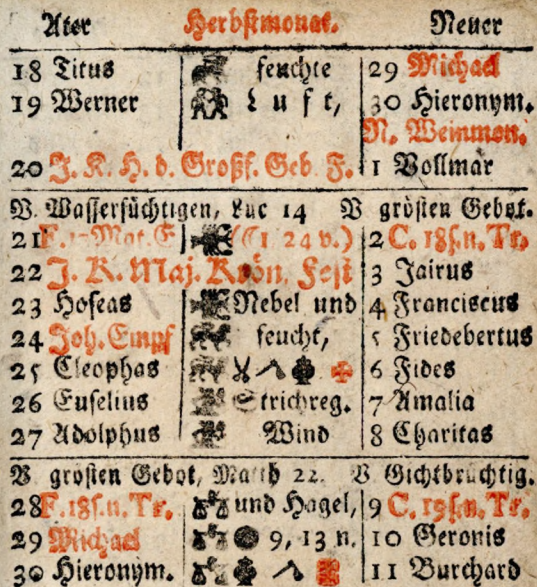 Alter Herbstmonat. Neuer
18 Titus feuchte 29 Michael
19 Werner Luft, 30 Hieronym.
N. Weinmon.
20 J. K. H. d. Großf. Geb. F. 1 Vollmar
V. Wassersüchtigen, Luc 14 V grösten Gebot.
21 F. 17 Mat. E (1 24 v.) 2 C. 18 s. n. Tr.
22 J. K. Maj. Krön. Fest 3 Jairus
23 Hoseas Nebel und 4 Franciscus
24 Joh. Empf feucht, 5 Friedebertus
25 Cleophas 6 Fides
26 Euselius Strichreg. 7 Amalia
27 Adolphus Wind 8 Charitas
V grösten Gebot, Matth 22. V Gichtbrüchtig.
28 F. 18 s. n. Tr. und Hagel, 9 C. 19 s. n. Tr.
29 Michael 9, 13 n. 10 Geronis
30 Hieronym. 11 Burchard